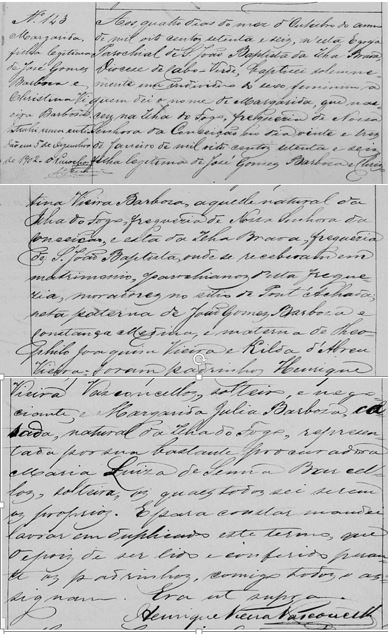 N.º 143
Margarida,
filha legitima
de José Gomes
Barbosa e
Christina Vi
eira Barboza
de 1902. O
Aos quatro dias do mez d'Outubro do anno
de mil oito centos setenta e seis, n'esta Egreja
Parochial de S. João Baptista da Ilha Brava,
Diocese de Cabo-Verde, baptisei solemne
mente um individuo do sexo feminino, a
quem dei o nome de Margarida, que nas
ceu na Ilha do Fogo, freguezia de Nossa
Senhora da Conceição no dia vinte e tres
de Janeiro de mil oito centos setenta e seis,
filha legitima de José Gomes Barboza e Chris
tina Vieira Barboza, aquelle natural da
Ilha do Fogo, freguezia de Nossa Senhora da
Conceição, e esta da Ilha Brava, freguezia
de S. João Baptista, onde se receberam em
matrimonio, parochianos desta fregue
zia, moradores no sitio de Achada;
neta paterna de João Gomes Barboza e
Constança Medina, e materna de Theo
philo Joaquim Vieira e Kilda d'Abreu
Vieira. Foram padrinhos, Henrique
Vieira Vasconcellos, solteiro, e nego
ciante, e Margarida Julia Barboza, ca
sada, natural da Ilha do Fogo, represen
tada por sua bastante procuradora
Maria Luiza de Senna Barcel
los, solteira, os quaes todos sei serem
os proprios. E para constar mandei
lavrar em duplicado este termo, que
depois de ser lido e conferido peran
te os padrinhos, comigo todos o as
signam. Era ut supra.
Henrique Vieira Vasconcellos